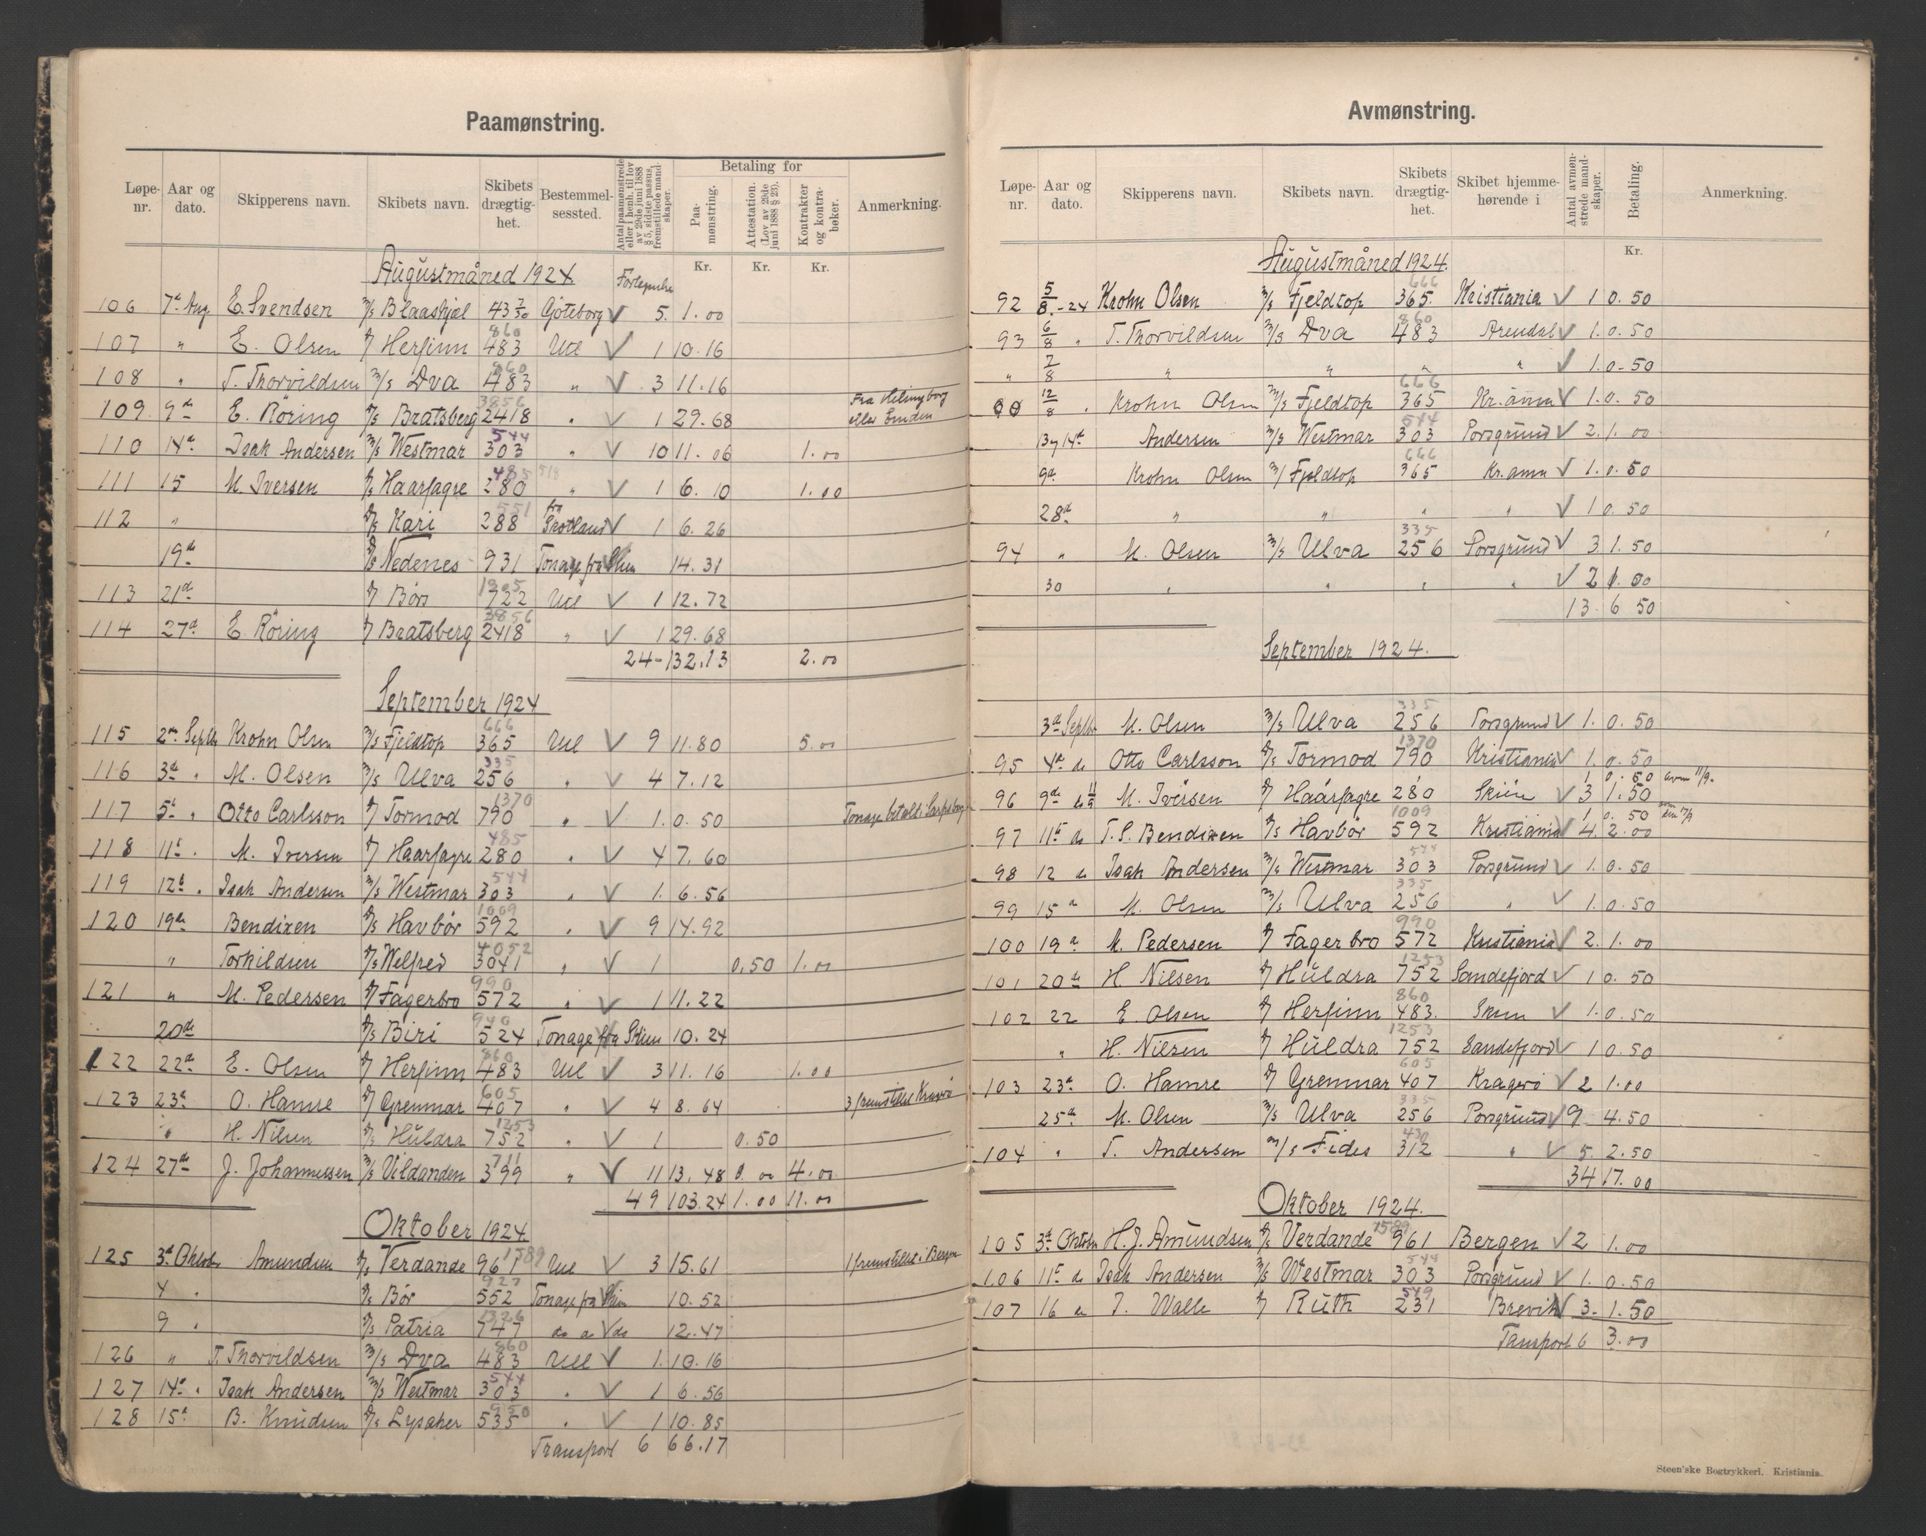 Paamønstring.
Løpe-nr. Aar og dato. Skipperens navn. Skibets navn. Skibets drægtighet. Bestemmelsessted. Antal paamønstrede eller i henh. til lov av 29de juni 1888 § 5, sidste passus, fremstillede mandskaper. Betaling for Paamønstring. Attestation. (Lov av 29de juni 1888 § 23). Kontrakter og kontrabøker. Anmerkning.
Kr. Kr. Kr.
Augustmåned 1924
106 7d Aug E. Svendsen M/s Blaaskjæl 43 7/50 Göteborg V 5. 1.00
860
107 " E. Olsen D/ Herfinn 483 Utl V 1 10.16
860
108 " T. Thorvildsen M/s Dva 483 " V 3 11.16
3856 Fra Helsingborg
109. 9de E. Röring D/s Bratsberg 2418 " V 1 29.68 eller Emden
544
110 14d Isak Andersen M/s Westmar 303 " V 10 11.06 1.00
485 518
111 15 M. Iversen D/s Haarfagre 280 " V 1 6.10 1.00
551 fra
112 " D/s Kari 288 Skotland V 1 6.26
19de D/s Nedenes 931 Tonage fra Skien 14.31
1305
113 21d D/ Børs 722 Utl V 1 12.72
3856
114 27d E. Röring D/ Bratsberg 2418 " V 1 29.68
24 - 132.13 2.00
September 1924
666
115 2n Septbr Krohn Olsen M/s Fjeldtop 365 Utl V 9 11.80 5.00
335
116 3d " M. Olsen M/s Ulva 256 " V 4 7.12
1370
117 5t " Otto Carlsson D/ Tormod 790 " V 1. 0.50 Tonage betalt i Sarpsborg
485
118 11t " M. Iversen D/ Haarfagre 280 " V 4 7.60
544
119 12t " Isak Andersen M/s Westmar 303 " V 1. 6.56
1009
120 19de Bendixen D/s Havbör 592 " V 9 14.92
4052
" Torkildsen D/s Welfred 3041 " V 1 0.50 1.00
990
121 " M. Pedersen D/ Fagerbro 572 " V 1 11.22
940
20de D/s Biri 524 Tonage fra Skien 10.24
860
122 22d E. Olsen D/ Herfinn 483 Utl V 3 11.16 1.00
605
123 23d O. Hamre D/ Grenmar 407 " V 4 8.64 3 fremstillet Kragerö
1253
" H. Nilsen D/s Huldra 752 " V 1 0.50
711
124 27de J. Johannessen M/s Vildanden 399 " V 11 13.48 0.00 4.00
49 103.24 1.00 11.00
Oktober 1924
1589
125 3d Oktober Amundsen D/s Verdande 961 Utl V 3 15.61 1 fremstillet i Bergen
927
4 " D/s Bör 552 Tonage fra Skien 10.52
1326
9 " D/s Patria 747 do a Vdo 12.47
860
126 " T. Thorvildsen M/s Dva 483 Utl V 1. 10.16
544
127 14de " Isak Andersen M/s Westmar 303 " V 1 6.56
950
128 15d B. Knudsen D/s Lysaker 535 " V 1 10.85
Transport 6 66.17
Avmønstring.
Løpe-nr. Aar og dato. Skipperens navn. Skibets navn. Skibets drægtighet. Skibet hjemmehørende i Antal avmønstrede mandskaper. Betaling. Anmerkning.
Kr.
Augustmåned 1924.
666
92 5/8 - 24 Krohn Olsen M/s Fjeldtop 365 Kristiania V 1 0.50
860
93 6/8 " T. Thorvildsen M/s Dva 483 Arendal V 1. 0.50
" 7/8 " " " " V 1. 0-50
666
12/8 " Krohn Olsen M/s Fjeldtop 365 Kr. ania V 1. 0.50
544
13 y 14de Andersen M/s Westmar 303 Porsgrund V 2. 1.00
666
9d Krohn Olsen M/ Fjeldtop 365 Kr. ania V 1. 0.50
28d " " " " V 1 0.50
335
94 " M. Olsen M/s Ulva 256 Porsgrund V 3 1.50
30 " " " " V 2 1.00
13. 6 50
September 1924.
335
3d Septbr M. Olsen M/s Ulva 256 Porsgrund V 1. 0.50
1370
95 4d do Otto Carlsson D/s Tormod 790 Kristiania V 1. 0.50
1 0.50 avm 11/9.
96 9de do 11/9 M. Iversen D/ Haarfagre 280 Skien V 3 1.50
1009 1 0.50 avm den 17/9
97 11te do T. S. Bendixen D/s Havbör 592 Kristiania V 4. 2.00
544
98 12 d Isak Andersen M/s Westmar 303 Porsgrund V 1. 0.50
335
99 15 d M. Olsen M/s Ulva 256 " V 1. 0.50
990
100 19 d M. Pedersen D/ Fagerbro 572 Kristiania V 2. 1.00
1253
101 20de H. Nilsen D/ Huldra 752 Sandefjord V 1 0.50
860
102 22 E Olsen D/ Herfinn 483. Skien V 1. 0.50
1253
" H. Nilsen D/ Huldra 752 Sandefjord V 1 0.50
605
103 23d O. Hamre D/ Grenmar 407 Kragerø V 2 1.00
335
25d M. Olsen M/s Ulva 256 Porsgrund V 9 4.50
430
104 " T. Andersen M/s Fides 312 " V 5 2.50
34 17.00
Oktober 1924.
1589
105 3d Oktobr H. J. Amundsen D/s Verdande 961 Bergen V 2 1.00
544
106 11te do Isak Andersen M/s Westmar 303 Porsgrund V 1. 0.50
549
107 16 d J. Walle D/ Ruth 231 Brevik V 3. 1.50
Transport 6 3.00
Steen'ske Bogtrykkeri. Kristiania.